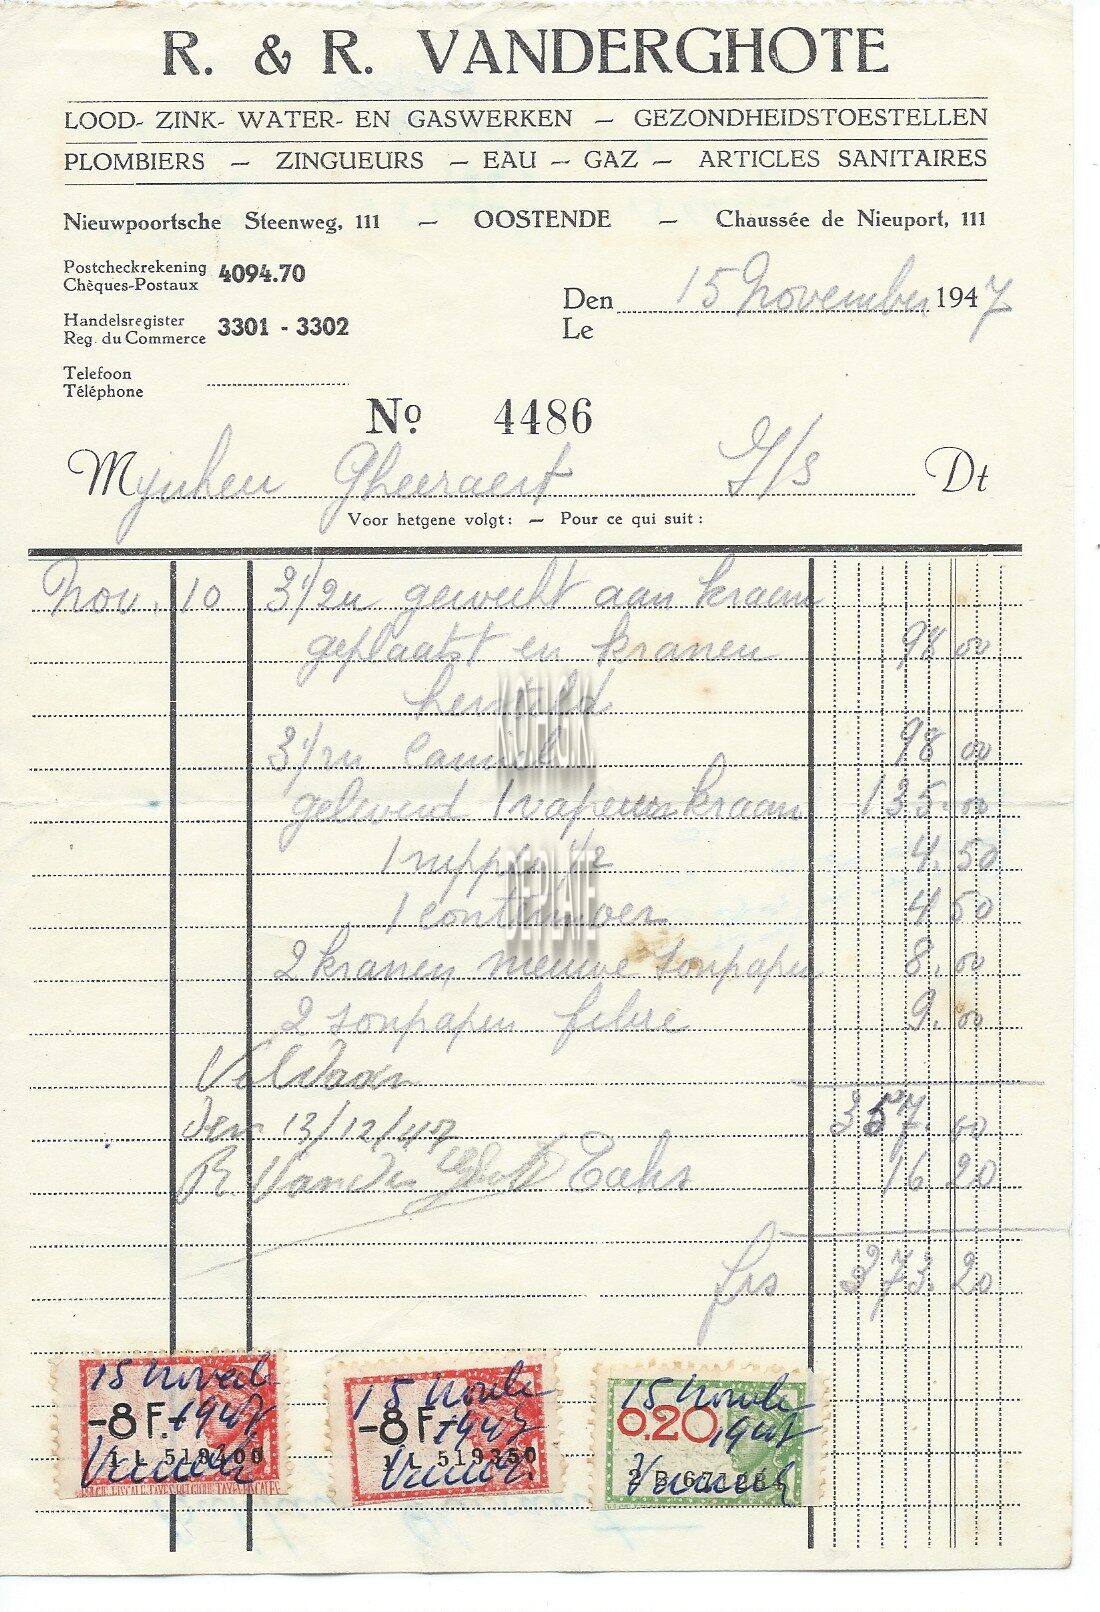 R. & R. VANDERGHOTE
LOOD- ZINK- WATER- EN GASWERKEN — GEZONDHEIDSTOESTELLEN
PLOMBIERS — ZINGUEURS — EAU — GAZ — ARTICLES SANITAIRES
Nieuwpoortsche Steenweg, 111 — OOSTENDE — Chaussée de Nieuport, 111
Postcheckrekening
Chèques-Postaux 4094.70
Handelsregister
Reg. du Commerce 3301 - 3302
Den 15 November 1947
Le
Telefoon
Téléphone
No 4486
Mynheer Gheeraert Dt
Voor hetgene volgt: — Pour ce qui suit:
Nov. 10 3 1/2u gewerkt aan kraan
geplaatst en kranen 98 00
hersteld
3 1/2u 98 00
geleverd 1 kraan 135.00
1 1/2 4.50
1 4 50
2 kranen nieuwe soupapen 8.00
2 soupapen fibre 9.00
Voldaan
357.00
Den 13/12/47
R. Vanderghote Taks 16 20
frs 373.20
15 Novemb 1947
-8 F.
1 L 519400
15 Novemb 1947
-8 F.
1 L 519350
15 Novemb 1947
0.20
KOPHOEK
DEPLATE